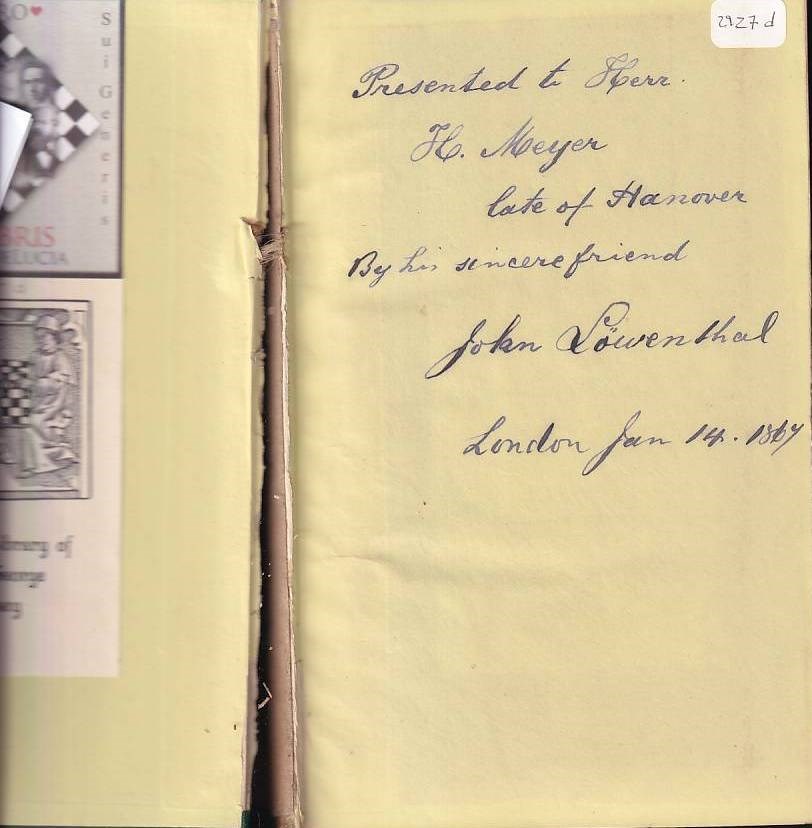 Sui Generis
BRIS
2927 d
Presented to Herr.
H. Meyer
late of Hanover
By his sincere friend
John Löwenthal
London Jan 14. 1867